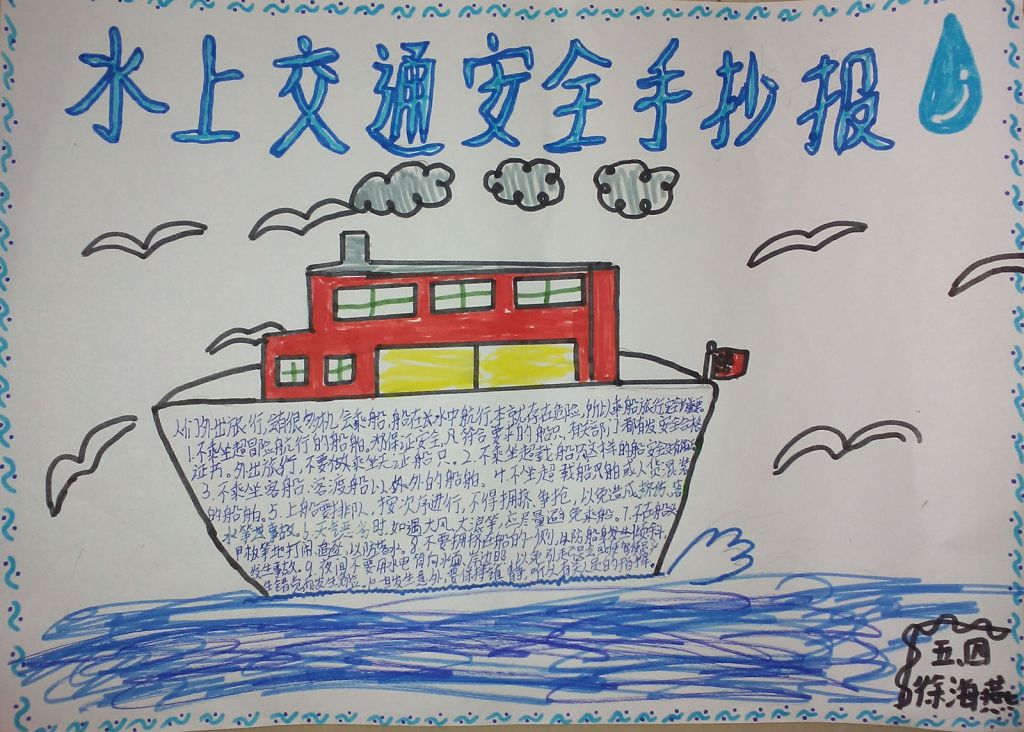 水上交通安全手抄报
人们外出旅行,有很多机会乘船,船在水中航行本就存在危险,所以乘船旅行安全重要
1.不乘坐超冒险航行的船舶。为保证安全,凡符合要求的船只,有关部门都有发安全合格
证书。外出旅行,不要乘坐无证船只。2.不乘坐超载船只,这样的船安全
3.不乘坐客船、客渡船以外的船舶。4.不坐超载船只船或人货混装
的船舶。5.上船要排队,按次序进行,不得拥挤、争抢,以免造成挤伤、
水等事故。6.天气恶劣时,如遇大风、大浪等,应尽量避免乘船。7.不在船头
甲板等地打闹、追逐,以防落水。8.不要拥挤在船的一侧,以防船身倾斜,
发生事故。9.夜间不要用水电筒向水面、岸边照,以免引起误会或使
生错觉而发生危险。10.发生意外,要保持镇静,听从有关人员的指挥。
五.四
徐海燕